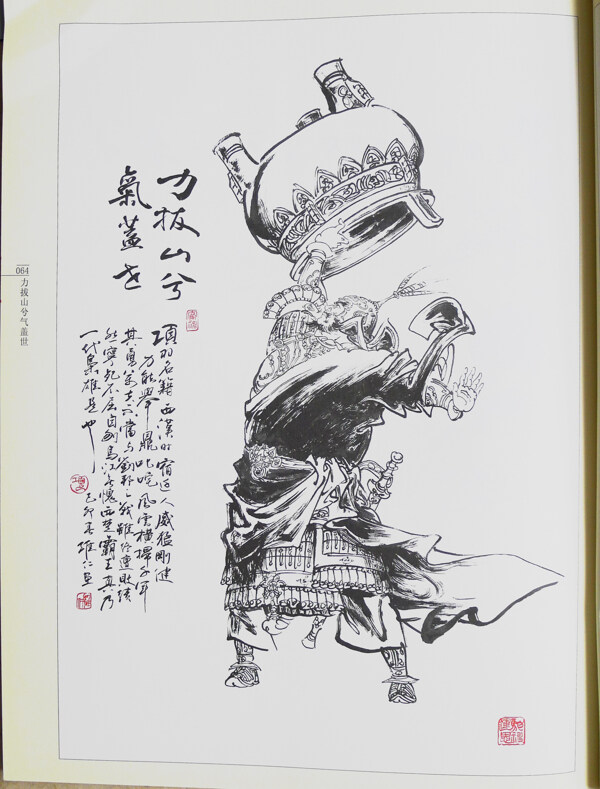 力拔山兮
氣蓋世
項羽名籍西漢時宿迁人威猛剛健
力能舉鼎叱咤風雲橫掃千軍
其勇萬夫不當与劉邦之戰雖经連敗績
然寧死不屈自刎烏江不愧西楚霸王真乃
一代梟雄是也
己卯春雄仁画
064
力拔山兮气盖世